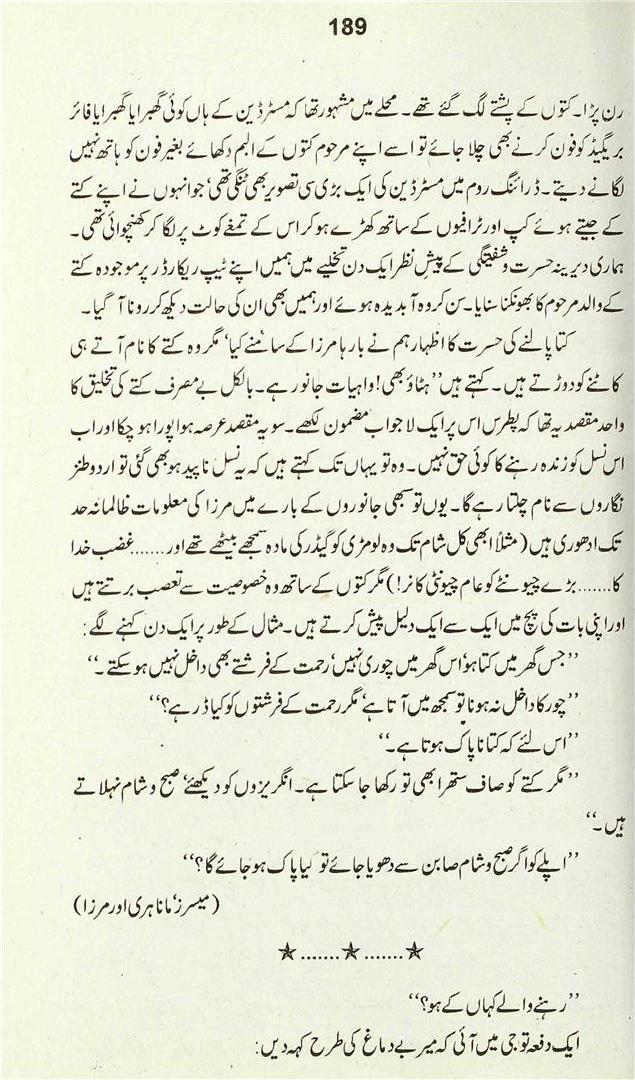 189
رن پڑا۔ کتوں کے پشتے لگ گئے تھے۔ محلے میں مشہور تھا کہ مسٹر ڈین کے ہاں کوئی گھبرایا گھبرایا فائر
بریگیڈ کو فون کرنے بھی چلا جائے تو اسے اپنے مرحوم کتوں کے البم دکھائے بغیر فون کو ہاتھ نہیں
لگانے دیتے۔ ڈرائنگ روم میں مسٹر ڈین کی ایک بڑی سی تصویر بھی ٹنگی تھی‘ جو انہوں نے اپنے کتے
کے جیتے ہوئے کپ اور ٹرافیوں کے ساتھ کھڑے ہو کر اس کے تمغے کوٹ پر لگا کر کھنچوائی تھی۔
ہماری دیرینہ حسرت و شفیتگی کے پیشِ نظر ایک دن تخلیے میں ہمیں اپنے ٹیپ ریکارڈر پر موجودہ کتے
کے والد مرحوم کا بھونکنا سنایا۔ سن کر وہ آبدیدہ ہوئے اور ہمیں بھی ان کی حالت دیکھ کر رونا آ گیا۔
کتا پالنے کی حسرت کا اظہار ہم نے بارہا مرزا کے سامنے کیا‘ مگر وہ کتے کا نام آتے ہی
کاٹنے کو دوڑتے ہیں۔ کہتے ہیں ’’ہٹاؤ بھی! واہیات جانور ہے۔ بالکل بے مصرف کتے کی تخلیق کا
واحد مقصد یہ تھا کہ پطرس اس پر ایک لاجواب مضمون لکھے۔ سو یہ مقصد عرصہ ہوا پورا ہو چکا اور اب
اس نسل کو زندہ رہنے کا کوئی حق نہیں۔ وہ تو یہاں تک کہتے ہیں کہ یہ نسل ناپید ہو بھی گئی تو اردو طنز
نگاروں سے نام چلتا رہے گا۔ یوں تو سبھی جانوروں کے بارے میں مرزا کی معلومات ظالمانہ حد
تک ادھوری ہیں (مثلاً ابھی کل شام تک وہ لومڑی کو گیڈر کی مادہ سمجھے بیٹھے تھے اور.......غضب خدا
کا.......بڑے چیونٹے کو عام چیونٹی کا نر!) مگر کتوں کے ساتھ وہ خصوصیت سے تعصب برتتے ہیں
اور اپنی بات کی پچ میں ایک سے ایک دلیل پیش کرتے ہیں۔ مثال کے طور پر ایک دن کہنے لگے:
’’جس گھر میں کتا ہو‘ اس گھر میں چور ہی نہیں‘ رحمت کے فرشتے بھی داخل نہیں ہو سکتے۔‘‘
’’چور کا داخل نہ ہونا تو سمجھ میں آتا ہے‘ مگر رحمت کے فرشتوں کو کیا ڈر ہے؟‘‘
’’اس لئے کہ کتا ناپاک ہوتا ہے۔‘‘
’’مگر کتے کو صاف ستھرا بھی تو رکھا جا سکتا ہے۔ انگریزوں کو دیکھئے‘ صبح و شام نہلاتے
ہیں۔‘‘
’’اپلے کو اگر صبح و شام صابن سے دھویا جائے تو کیا پاک ہو جائے گا؟‘‘
(میسرز‘ ماتا ہری اور مرزا)
★.......★.......★
’’رہنے والے کہاں کے ہو؟‘‘
ایک دفعہ تو جی میں آئی کہ میر بے دماغ کی طرح کہہ دیں: